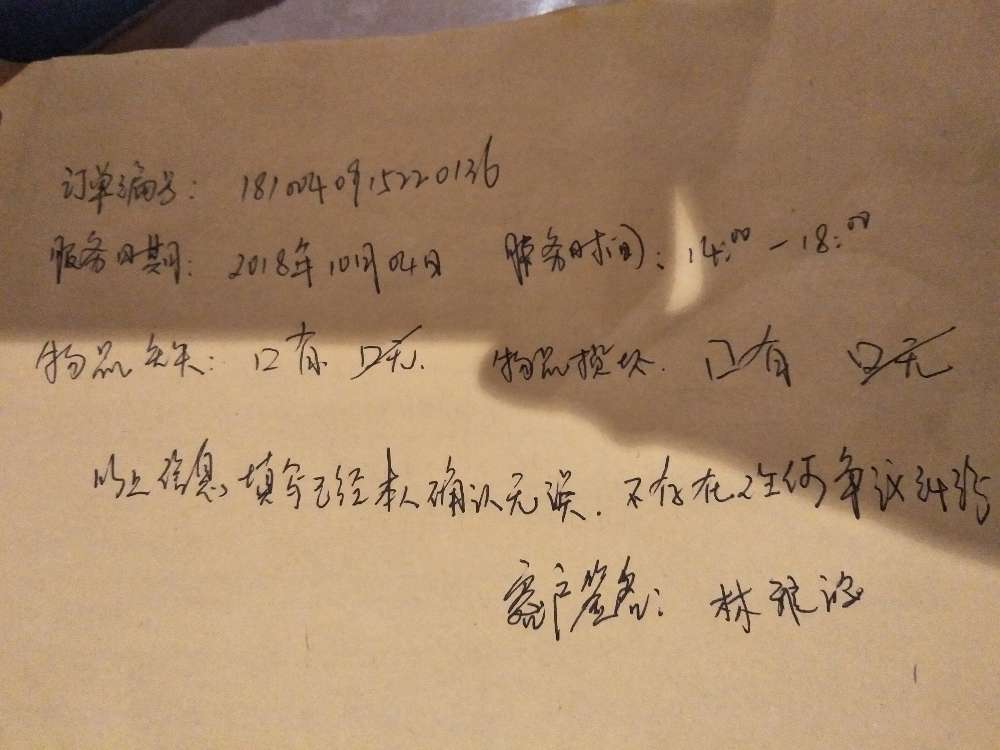 订单编号: 1810040915220136
服务日期: 2018年10月04日 服务时间: 14:00-18:00
物品丢失: 口有 口无. 物品损坏. 口有 口无
以上信息填写已经本人确认无误. 不存在任何争议纠纷
客户签名: 林雅